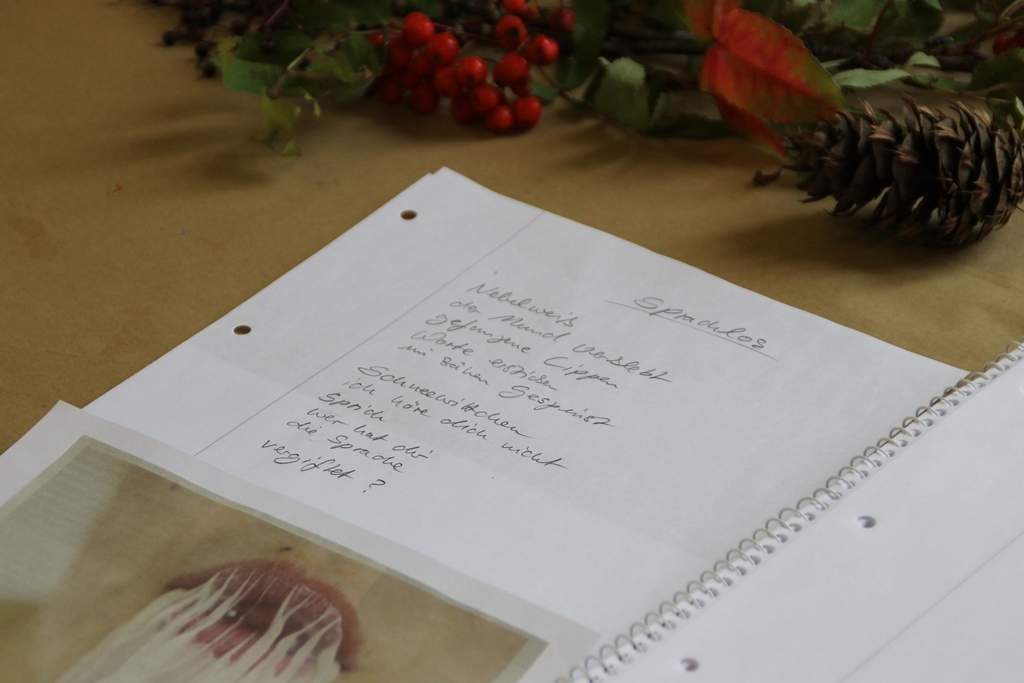 Sprachlos
Nebelweiß
der Mund verklebt
gefangene Lippen
Worte ersticken
im zähen Gespinst
Schneewittchen
ich höre dich nicht
Sprich
wer hat dir
die Sprache
vergiftet?